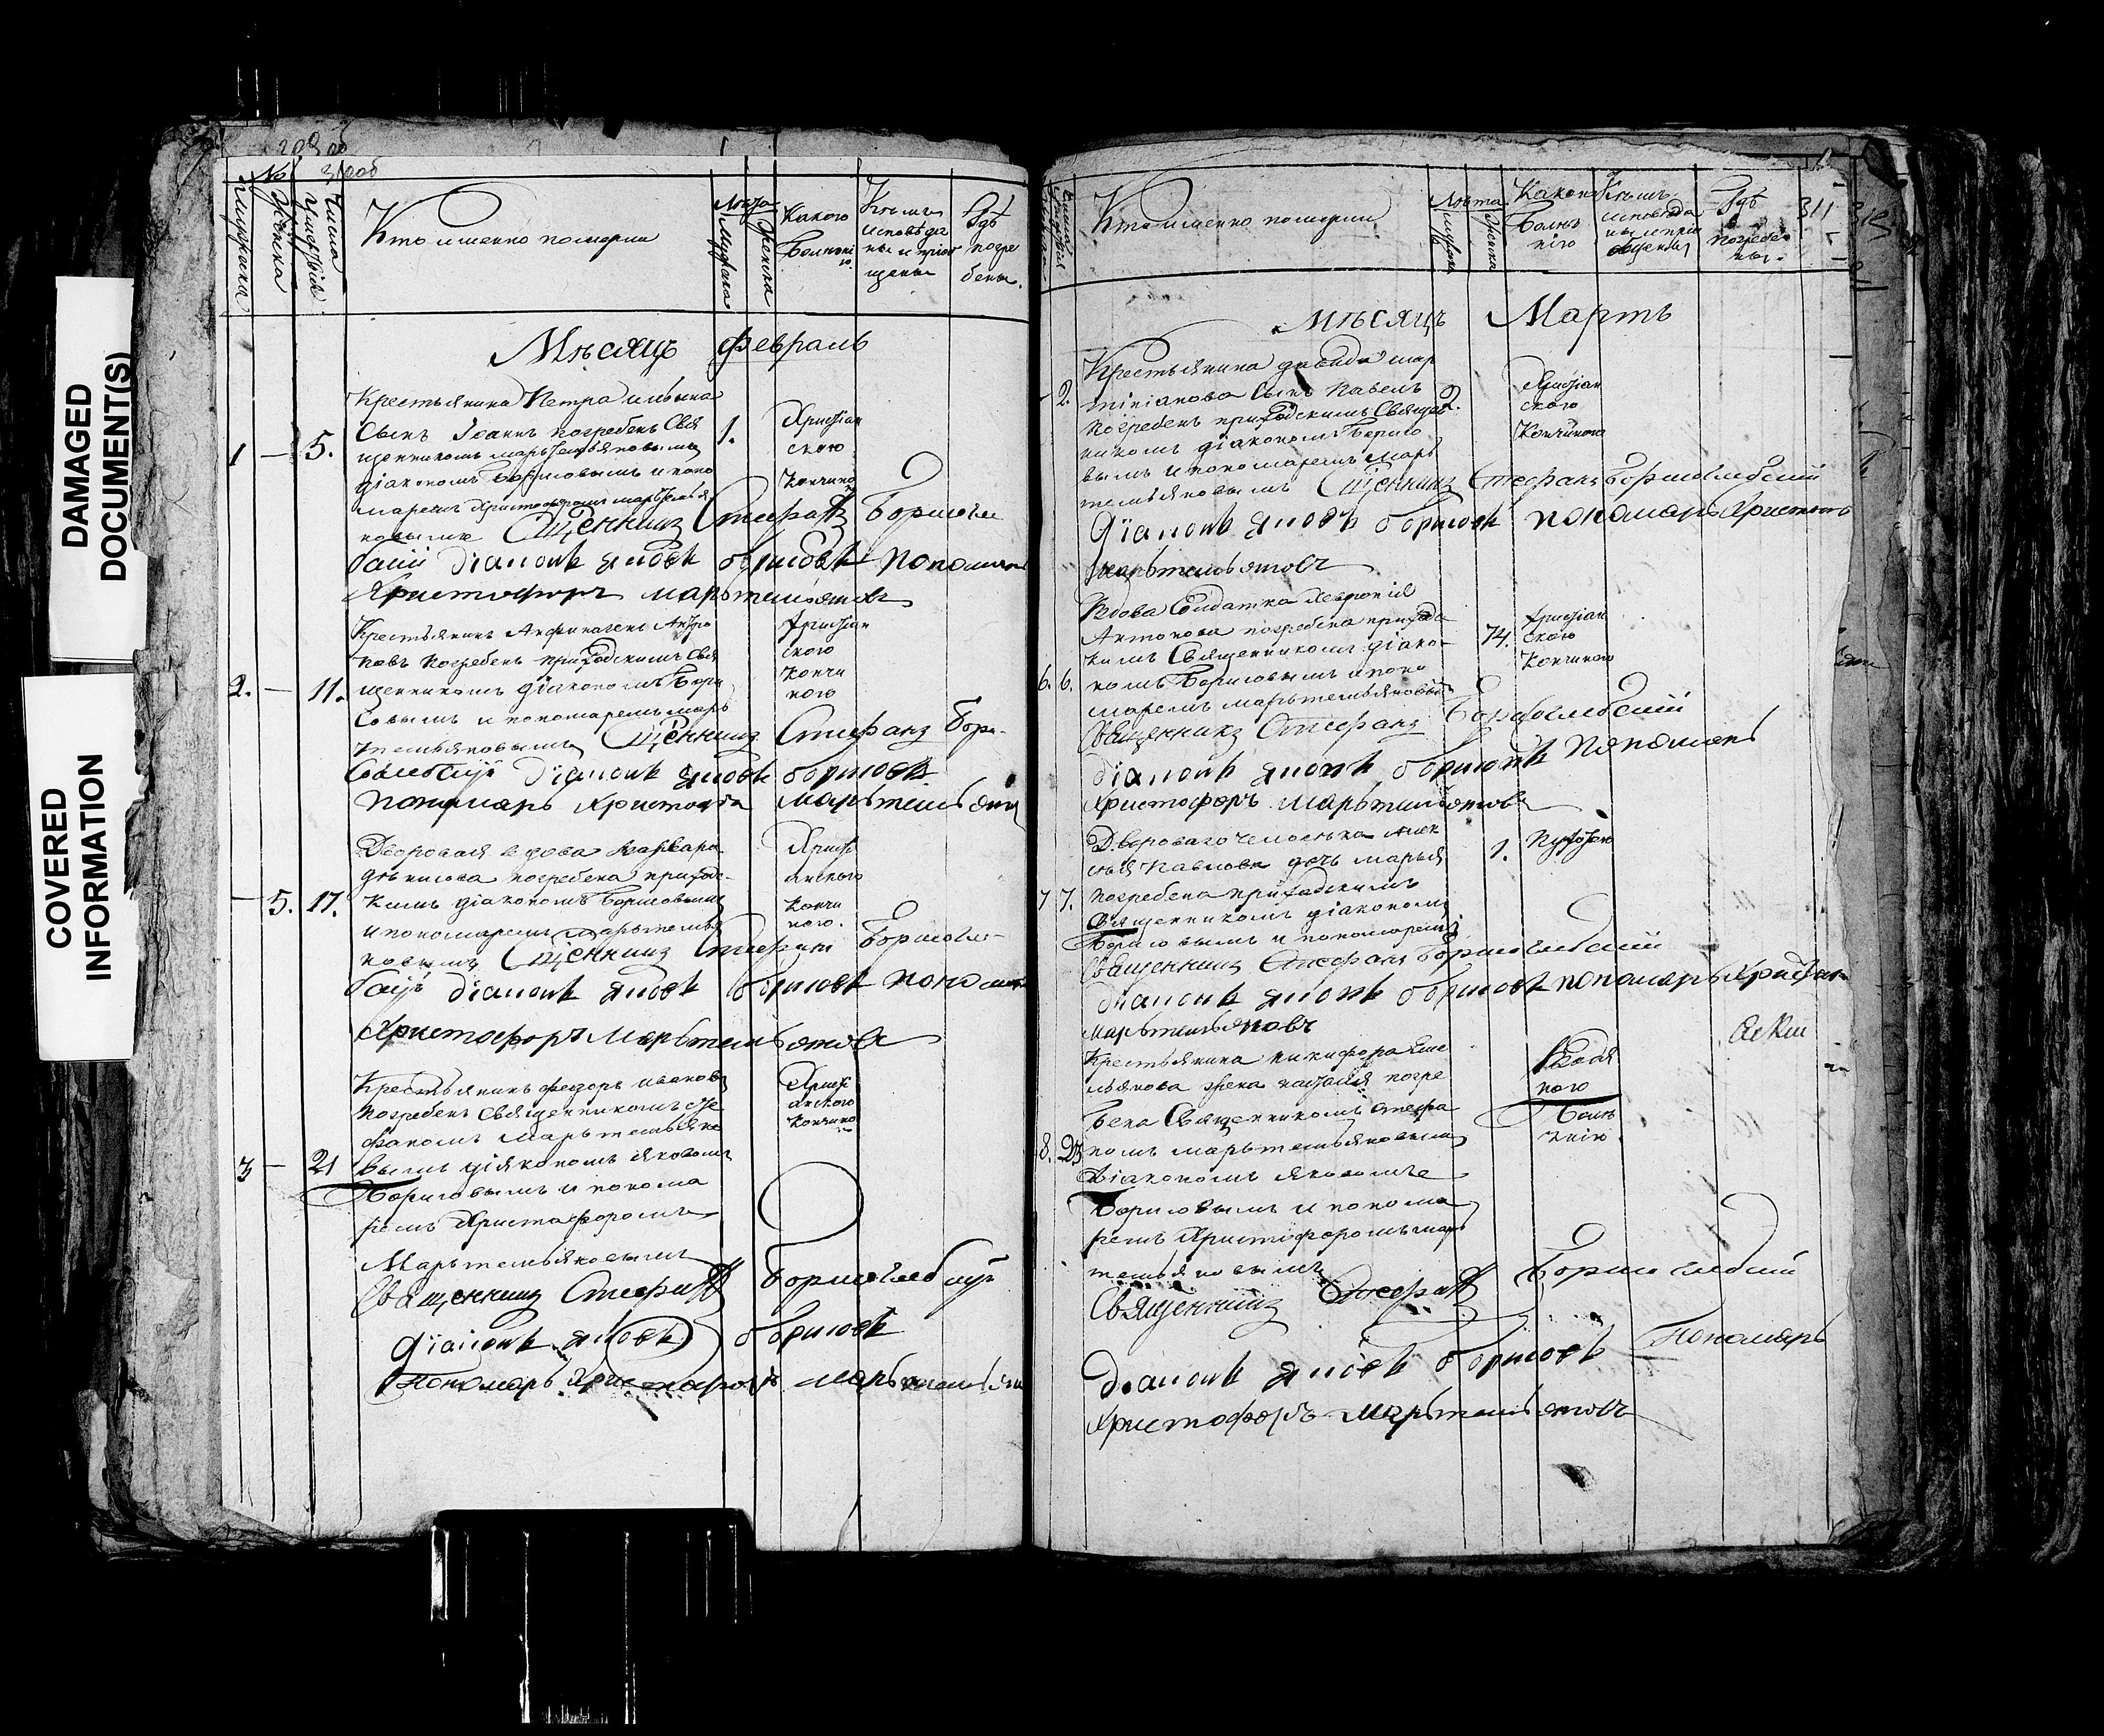 DAMAGED
DOCUMENT(S)
COVERED
INFORMATION
№
мужска
женска
Числа
Кто именно померли
Лѣта
Мужска
Женска
Какого
Болѣзні
ю
Кѣмъ
исповѣда
ны и приоб
щены
Гдѣ
погре
бены.
Мѣсяцъ Февраль
1 — 5.
Крестьянина Петра
Сынъ Іоаннъ погребенъ Свя
щенникомъ
діакономъ Борисовымъ и поно
маремъ
новымъ
1.
Христіан
скою
кончино
Сщенникъ Стефанъ Борисогле
бскій діаконъ Яковъ Борисовъ Пономарь
Христофоръ Мартемьяновъ
2. — 11.
Крестьянинъ
новъ погребенъ приходскимъ Свя
щенникомъ діакономъ Бори
совымъ и пономаремъ Марь
темьяновымъ
Христіан
ского
кончи
ного
Сщенникъ Стефанъ Бори-
соглебскій діаконъ Яковъ Борисовъ
Пономарь Христофоръ Мартемьянов
— 5. 17.
Дворовая вдова Варвара
Денисова погребена приход-
кимъ діакономъ Борисовымъ
и пономаремъ Мартемья
новымъ
Христі
анского
кончи
ного.
Сщенникъ Стефанъ Борисогле-
бскій діаконъ Яковъ Борисовъ Пономарь
Христофоръ Мартемьяновъ
3 — 21
Крестьянинъ Федоръ Ивановъ
погребенъ Священникомъ Сте
фаномъ Мартемьяно
вымъ діякономъ Яковомъ
Борисовымъ и понома
ремъ Христафоромъ
Мартемьяновымъ
Христі
анского
кончино
Священникъ Стефанъ Борисоглебскій
діаконъ Яковъ Борисовъ
Пономарь Христофоръ Мартемьянов
Кто именно померли
Лѣта
мужска
женска
Какою
Болѣз
нію
Кѣмъ
исповѣда
ны и прі
общены
Гдѣ
погребе
ны.
311
Мѣсяцъ Мартъ
2.
Крестьянина Давида Мар
тиніанова Сынъ Павелъ
погребенъ приходскимъ Священ
никомъ діакономъ Борисо
вымъ и пономаремъ Марь
темьяновымъ
2.
Христіан
ского
кончиного
Сщенникъ Стефанъ Борисоглебскій
діаконъ Яковъ Борисовъ пономарь Христоф
Мартемьяновъ
6. 6.
Вдова Солдатка Хеврония
Антонова погребена прихода
кимъ Священникомъ діако-
номъ Борисовымъ и поно
маремъ Мартемьяновымъ
74.
Христіан
ского
кончиного
Священникъ Стефанъ Борисоглебскій
діаконъ Яковъ Борисовъ Пономарь
Христофоръ Мартемьяновъ
7 7.
Двороваго человека Алек
сѣя Павлова дочь Марья
погребена приходскимъ
Священникомъ діакономъ
Борисовымъ и пономаремъ
1.
Священникъ Стефанъ Борисоглебскій
діаконъ Яковъ Борисовъ пономарь Христоф
Мартемьяновъ
8. 23
Крестьянина Никифора Еме
льянова жена Наталия погре
бена Священникомъ Стефа
номъ Мартемьяновымъ
Діакономъ Яковомъ
Борисовымъ и понома
ремъ Христофоромъ Марь
темьяновымъ
Водя
ного
Болѣ
знію
Священникъ Стефанъ Борисоглебскій
діаконъ Яковъ Борисовъ Пономарь
Христофоръ Мартемьяновъ